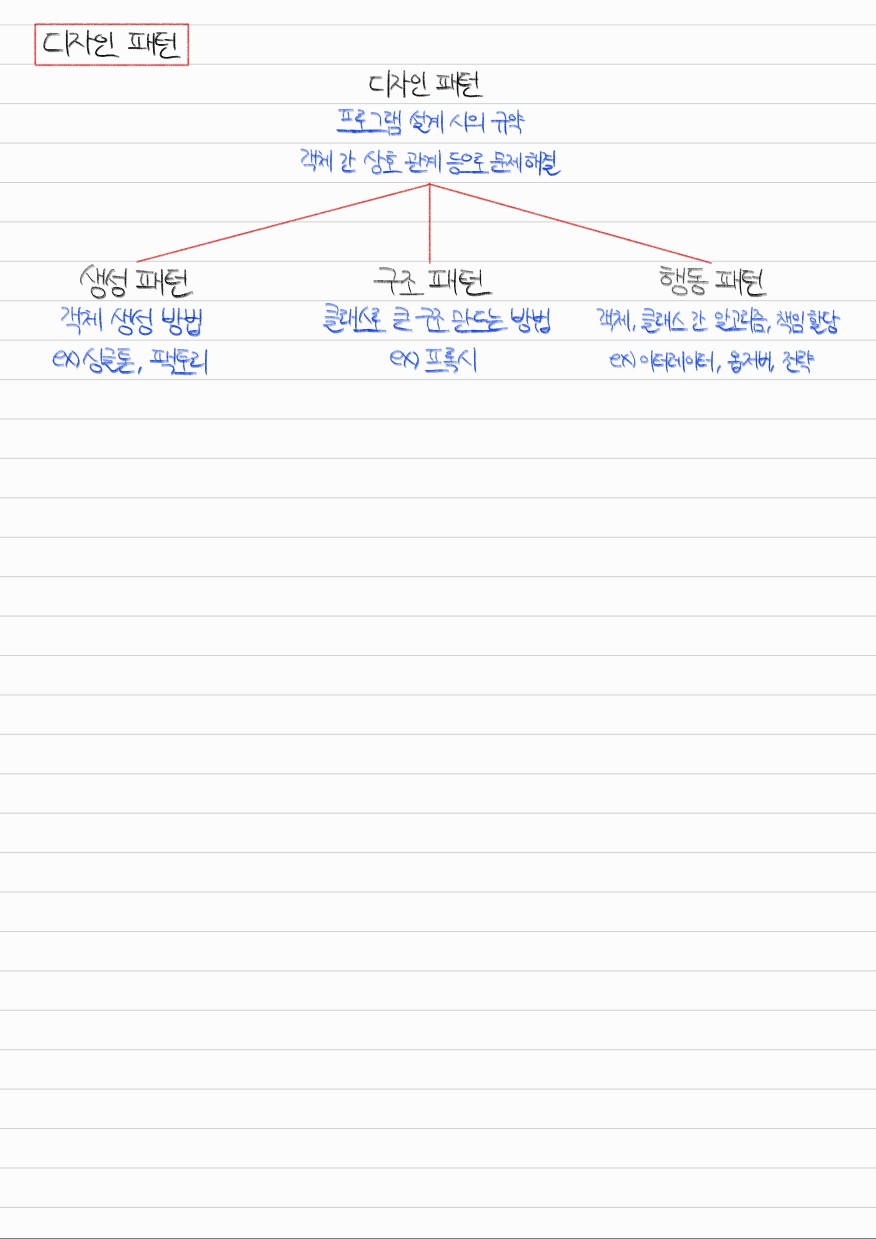 디자인 패턴
디자인 패턴
프로그램 설계 시의 규약
객체 간 상호 관계 등으로 문제 해결
생성 패턴
객체 생성 방법
ex) 싱글톤, 팩토리
구조 패턴
클래스로 큰 구조 만드는 방법
ex) 프록시
행동 패턴
객체, 클래스 간 알고리즘, 책임 할당
ex) 이터레이터, 옵저버, 전략